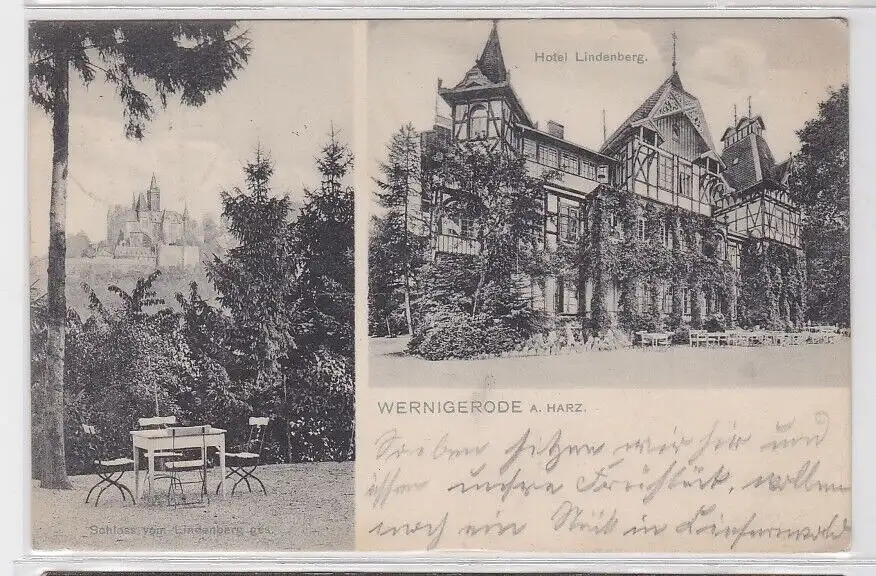 Hotel Lindenberg.
WERNIGERODE A. HARZ.
Soeben sitzen wir hir und
essen unsre Frühstück, wollen
noch ein Stük in Kiefernwald
Schloss vom Lindenberg ges.